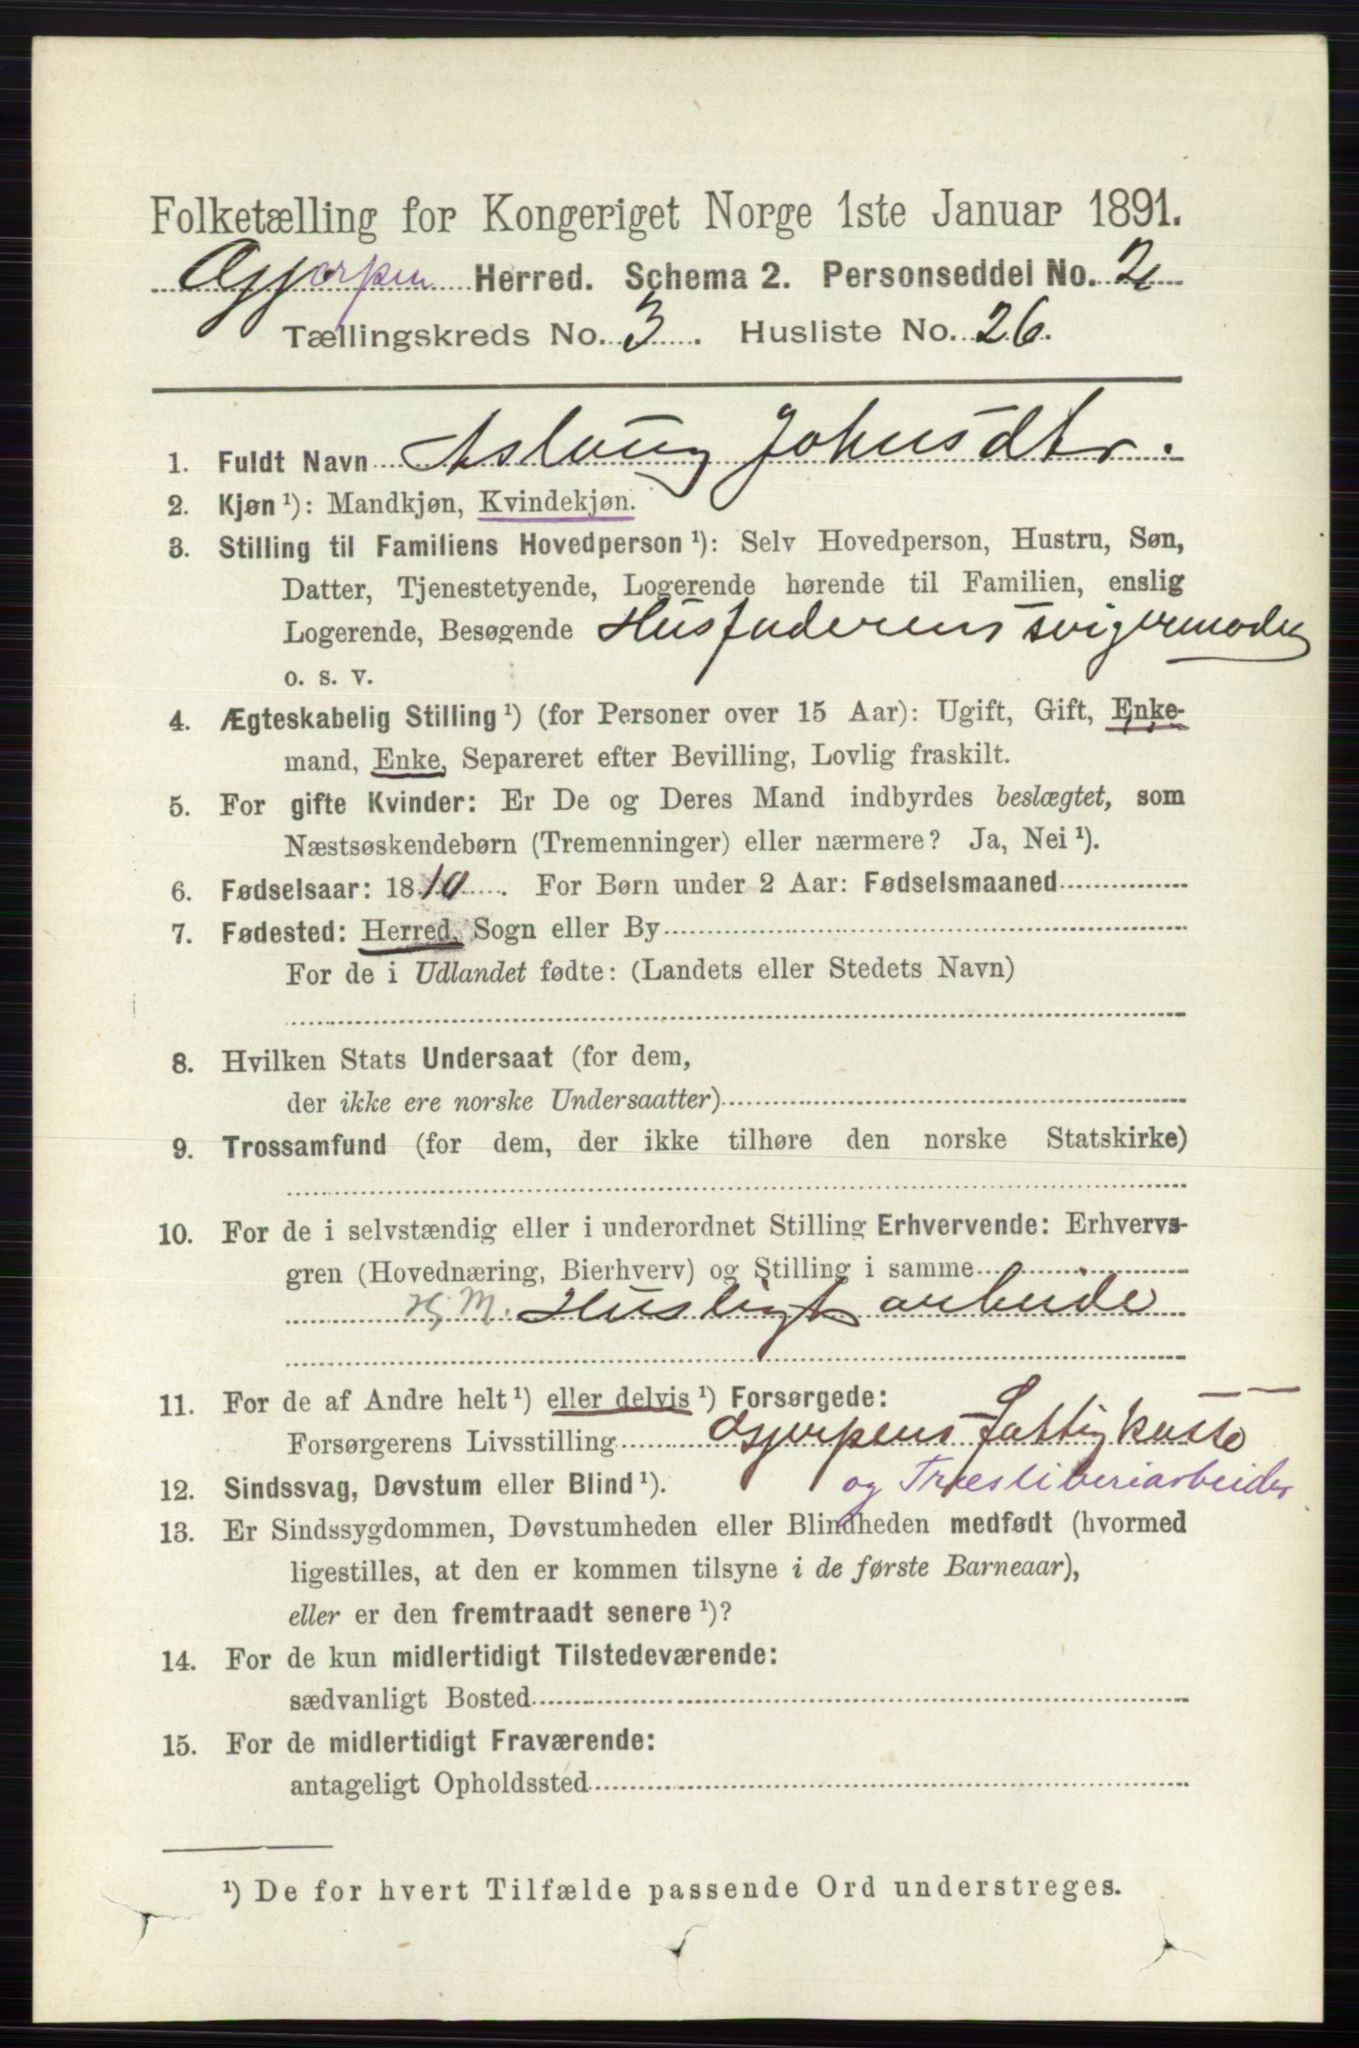 Folketælling for Kongeriget Norge 1ste Januar 1891.
Gjerpen Herred. Schema 2. Personseddel No. 2
Tællingskreds No. 3. Husliste No. 26.
1. Fuldt Navn Aslaug Johnsdtr.
2. Kjøn ¹): Mandkjøn, Kvindekjøn.
3. Stilling til Familiens Hovedperson ¹): Selv Hovedperson, Hustru, Søn,
Datter, Tjenestetyende, Logerende hørende til Familien, enslig
Logerende, Besøgende Husfaderens svigermoder
o. s. v.
4. Ægteskabelig Stilling ¹) (for Personer over 15 Aar): Ugift, Gift, Enke-
mand, Enke, Separeret efter Bevilling, Lovlig fraskilt.
5. For gifte Kvinder: Er De og Deres Mand indbyrdes beslægtet, som
Næstsøskendebørn (Tremenninger) eller nærmere? Ja, Nei ¹).
6. Fødselsaar: 1810. For Børn under 2 Aar: Fødselsmaaned
7. Fødested: Herred, Sogn eller By
For de i Udlandet fødte: (Landets eller Stedets Navn)
8. Hvilken Stats Undersaat (for dem,
der ikke ere norske Undersaatter)
9. Trossamfund (for dem, der ikke tilhøre den norske Statskirke)
10. For de i selvstændig eller i underordnet Stilling Erhvervende: Erhvervs-
gren (Hovednæring, Bierhverv) og Stilling i samme
H. M. Husligt arbeide
11. For de af Andre helt ¹) eller delvis ¹) Forsørgede:
Forsørgerens Livsstilling Gjerpens Fattigkasse
12. Sindssvag, Døvstum eller Blind ¹). og Træsliberiarbeider
13. Er Sindssygdommen, Døvstumheden eller Blindheden medfødt (hvormed
ligestilles, at den er kommen tilsyne i de første Barneaar),
eller er den fremtraadt senere ¹)?
14. For de kun midlertidigt Tilstedeværende:
sædvanligt Bosted
15. For de midlertidigt Fraværende:
antageligt Opholdssted
¹) De for hvert Tilfælde passende Ord understreges.